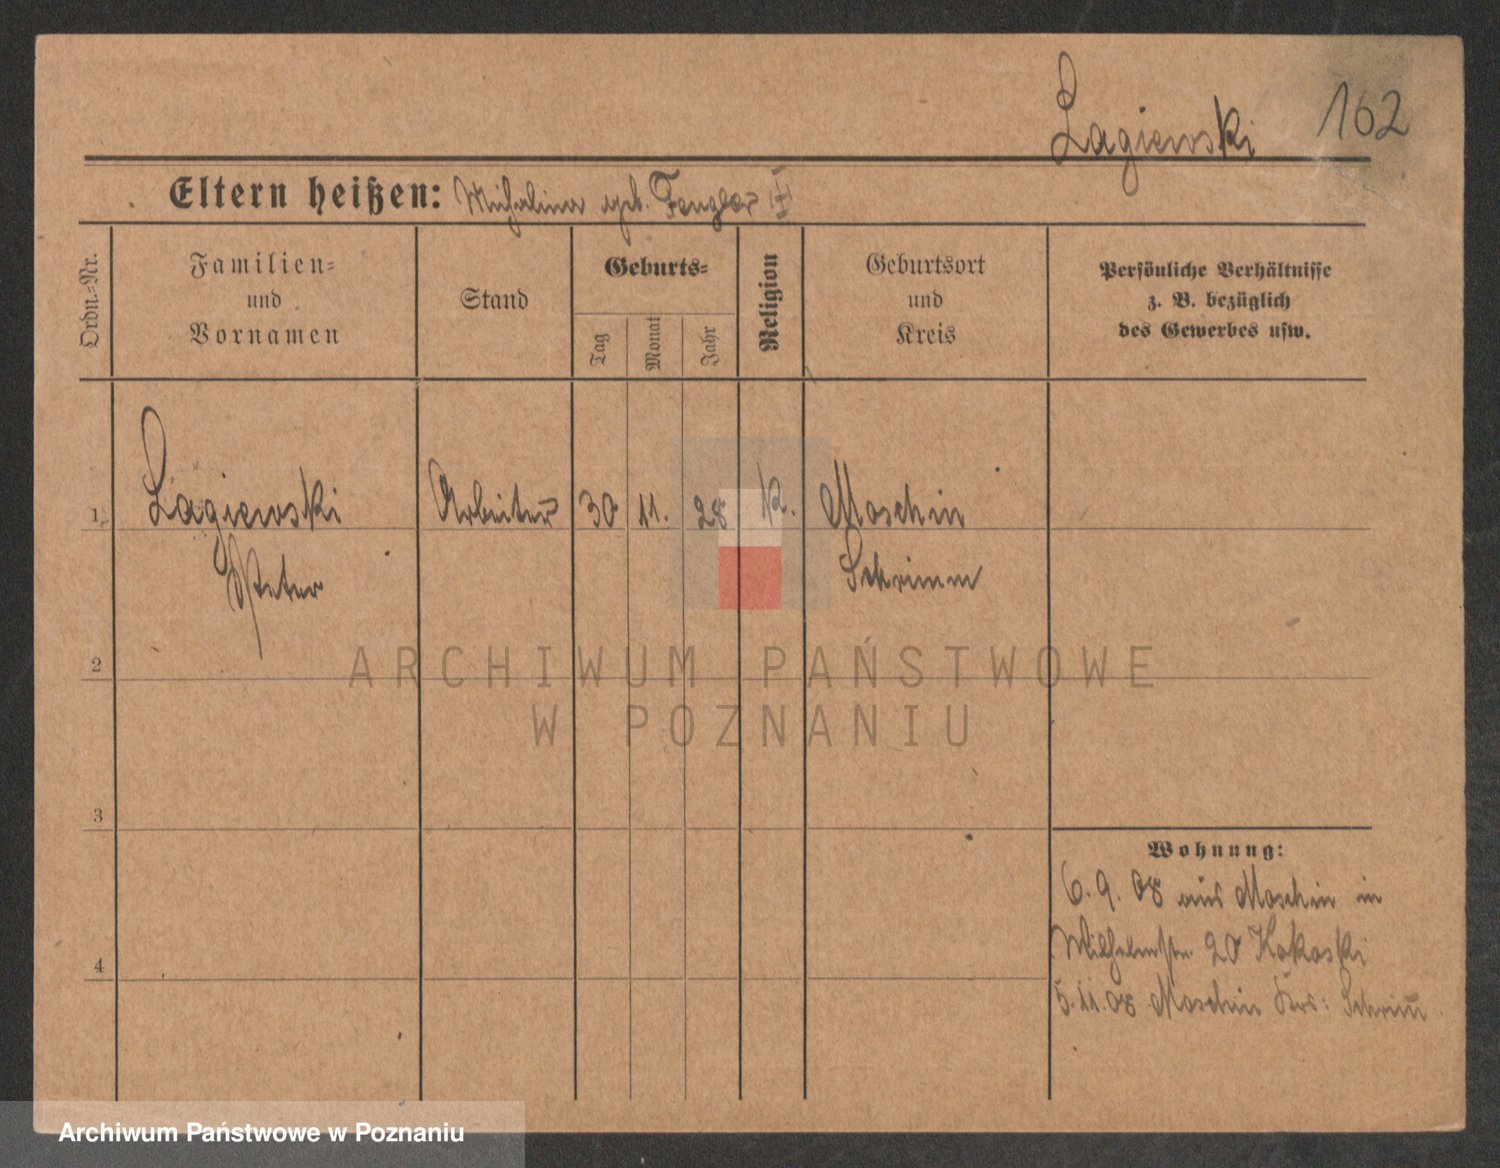 Lagiewski 162
Eltern heißen: Michalina geb. Fengler
Ordn.-Nr.
Familien-
und
Vornamen
Stand
Geburts-
Tag
Monat
Jahr
Religion
Geburtsort
und
Kreis
Persönliche Verhältnisse
z. B. bezüglich
des Gewerbes usw.
1 Lagiewski Arbeiter 30 11. 28 k. Moschin
Peter Schrimm
2
ARCHIWUM PAŃSTWOWE
W POZNANIU
3
Wohnung:
6.9.08 aus Moschin in
Wilhelmstr. 20 Kokoski
4
5.11.08 Moschin Krs: Schrim̄
Archiwum Państwowe w Poznaniu